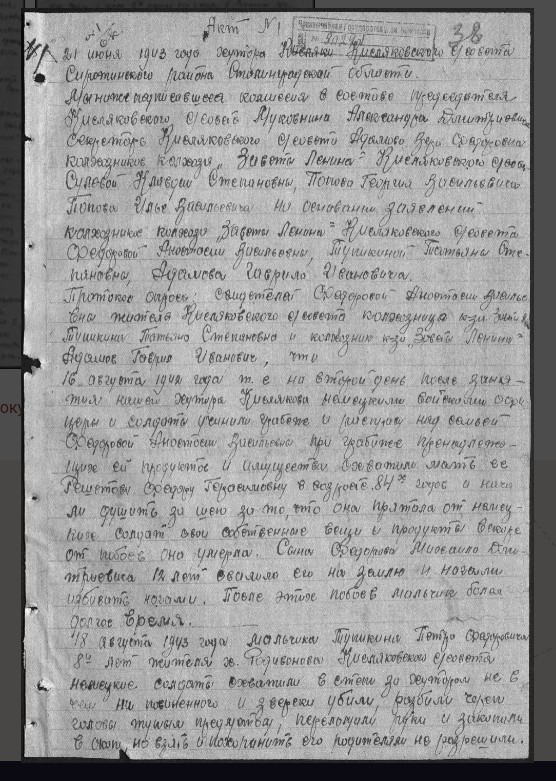 Акт № 1
38
21 июня 1943 года хутора Кисляки Кисляковского с/совета
Сиротинского района Сталинградской области.
Мы нижеподписавшиеся комиссия в составе председателя
Кисляковского с/совета Муковнина Александра Дмитриевича
Секретаря Кисляковского с/совета Адамова Вера Федоровна
колхозников колхоза „Заветы Ленина" Кисляковского с/совета
Клавдии Степановны, Попова Георгия Васильевича
Попова Ильи Васильевича на основании заявлений
колхозников колхоза „Заветы Ленина" Кисляковского с/совета
Федоровой Анастасии Васильевны, Тушкиной Татьяна Сте-
пановны, Адамова Гаврила Ивановича.
Протокол опроса: свидетелей Федоровой Анастасии Василь-
евна жителя Кисляковского с/совета колхозница к-за
Тушкина Татьяна Степановна и колхозник к-за „Заветы Ленина"
Адамов Гаврил Иванович, что
16 августа 1942 года т.е на второй день после заня-
тия нашего хутора Кислякова немецкими войсками офи
церы и солдаты учинили грабеж и расправу над семьей
Федоровой Анастасии Васильевны при грабеже принадлежа-
щие ей продуктов и имущества схватили мать ее
Решетову Герасимовну в возрасте 84х годов и нача
ли душить за шею за то, что она прятала от немец-
ких солдат свои собственные вещи и продукты вскоре
от побоев она умерла. Сына Федорова Михаила Дми-
триевича 12 лет свалили его на землю и начали
избивать ногами. После этого побоев мальчик болел
долгое время.
18 августа 1943 года мальчика Тушкина Петра Федоровича
8и лет жителя х. Родионова Кисляковского с/совета
немецкие солдаты схватили в степи за хутором не в
чем ни повиненного и зверски убили, разбили череп
головы тупым предметом, переломили руки и закопали
в окоп, но взять и похоронить его родителям не разрешили.